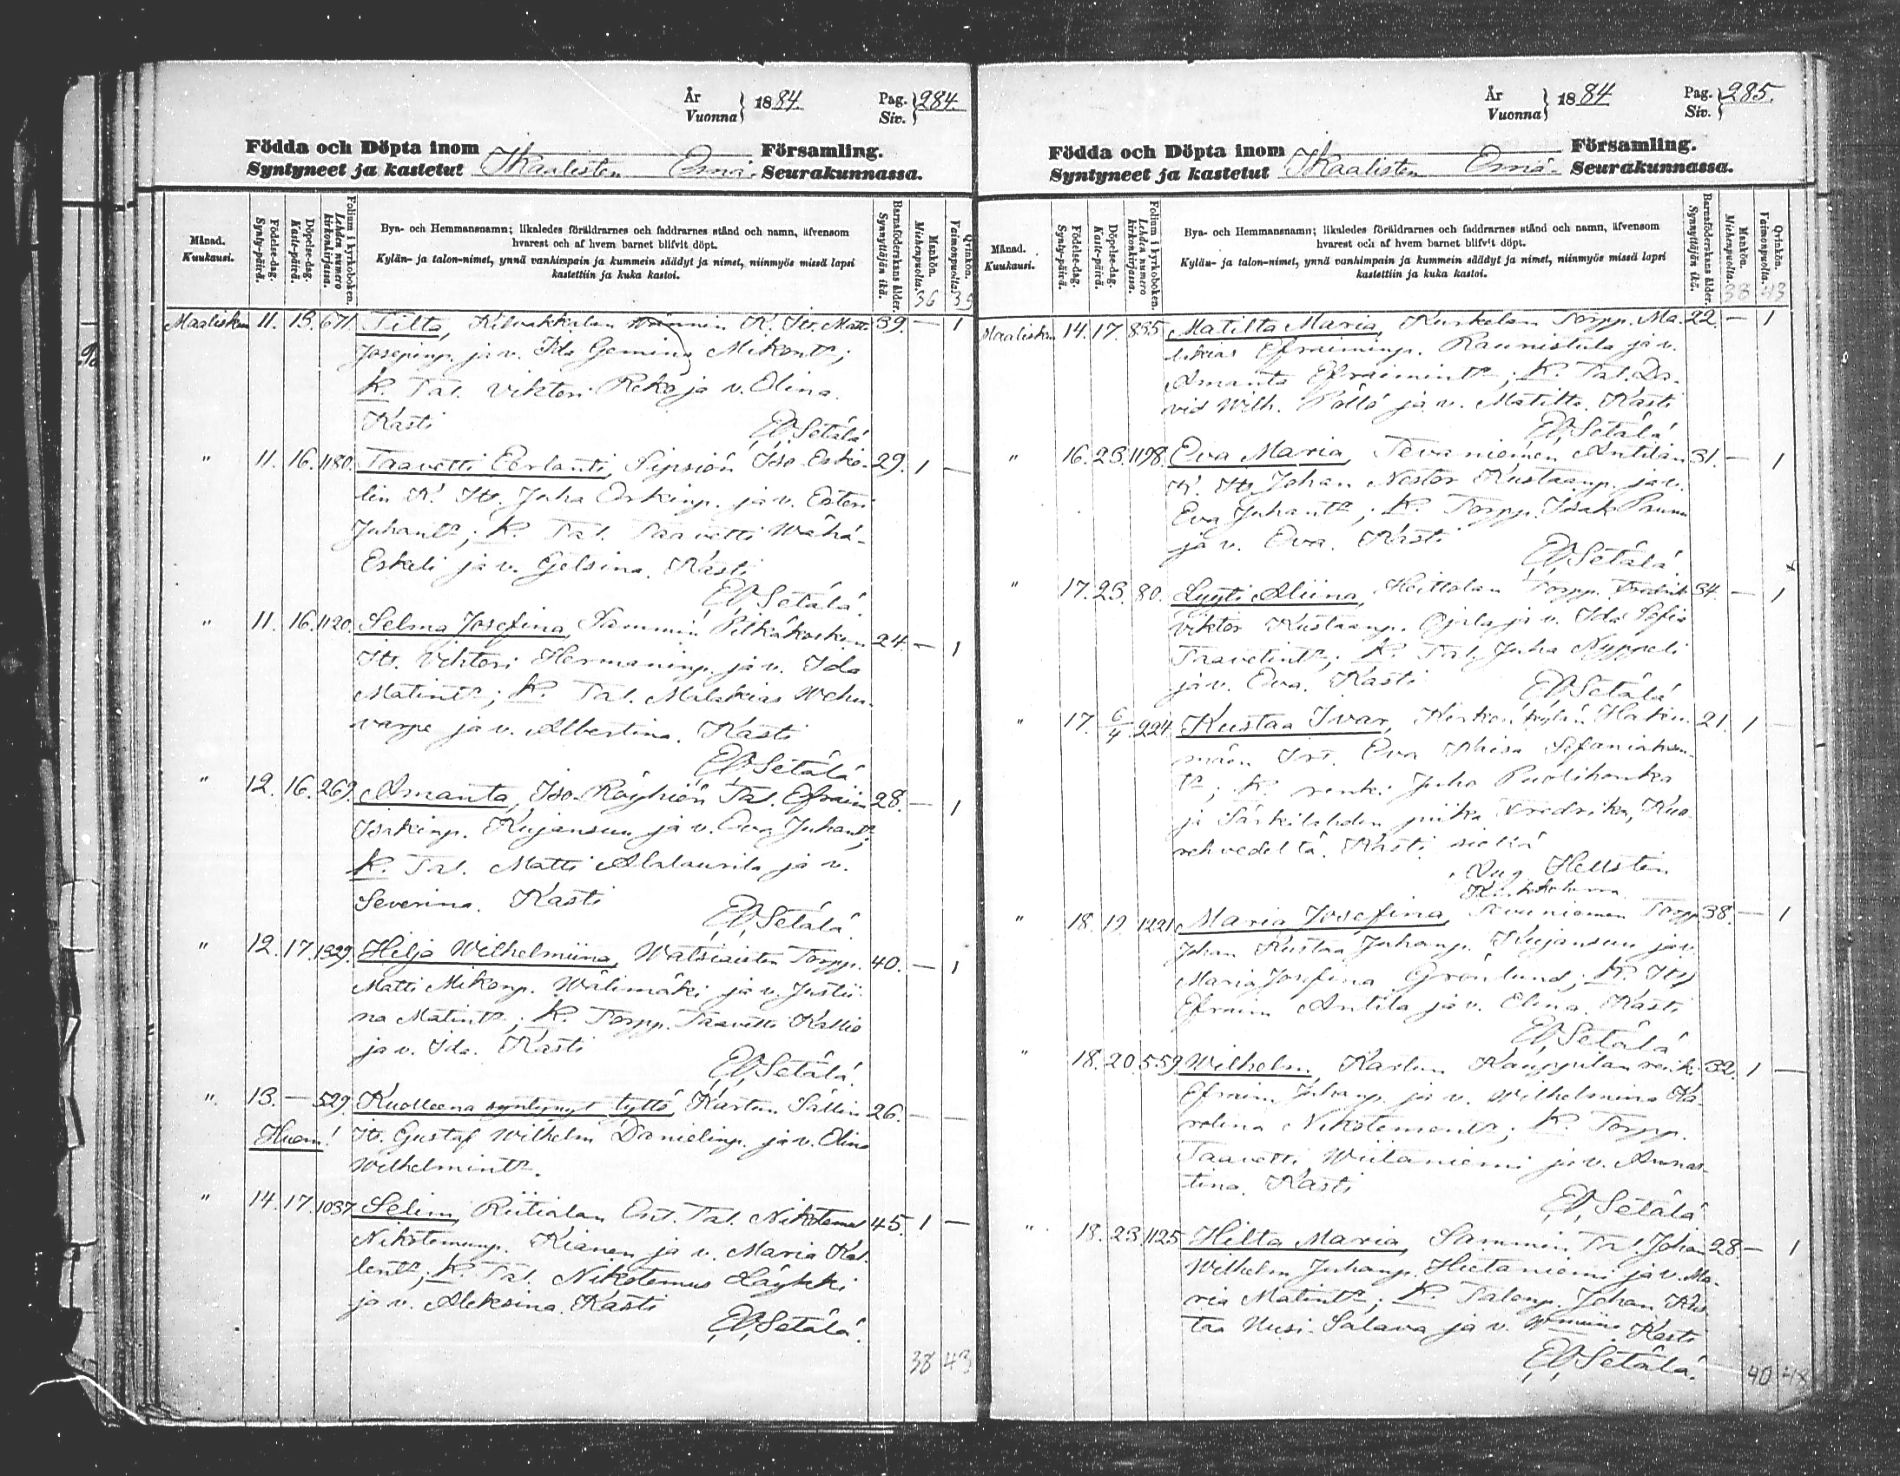 År
Vuonna
1884.
Pag.
Siv.
284
Födda och Döpta inom Församling.
Syntyneet ja kastetut Ikaalisten Emä- Seurakunnassa.
Månad.
Kuukausi.
Födelse-dag.
Synty-päivä.
Döpelse-dag.
Kaste-päivä.
Folium i kyrkoboken.
Lehden numero kirkonkirjassa.
Bya- och Hemmansnamn; likaledes föräldrarnes och faddrarnes stånd och namn, äfvensom
hvarest och af hvem barnet blifvit döpt.
Kylän- ja talon-nimet, ynnä vanhimpain ja kummein säädyt ja nimet, niinmyös missä lapsi
kastettiin ja kuka kastoi.
Barnaföderskans ålder.
Synnyttäjän ikä.
Mankön.
Miehenpuolta.
36
Qvinkön.
Vaimonpuolta.
39
Maalisken 11. 13. 671. Tilta, Kilvakkalan K. Itr. Matti 39. — 1
Josepinp. ja v. Ida Mikont^r;
K. Tal. Viktori Reko ja v. Olina.
Kasti
EV Setälä.
" 11. 16. 1180. Taavetti Eerlanti, Sipsiön Iso Eske- 29. 1 —
lin K. Itr. Juha Oskinp. ja v. Esteri
Juhant^r; K. Tal. Taavetti Wähä-
Eskeli ja v. Gelsina. Kasti
EV Setälä.
" 11. 16. 1120. Selma Josefina, Sammin Pitkäkosken 24. — 1
Itr. Vihtori Hermaninp. ja v. Ida
Matint^r; K. Tal. Malakias Wehu-
varpe ja v. Albertina. Kasti
EV Setälä
" 12. 16. 269. Amanta, Iso-Röyhiön Tal. Efraim 28. — 1
Isakinp. Kujansuu ja v. Eva Juhant^r;
K. Tal. Matti Alalaurila ja v.
Severina. Kasti
EV Setälä.
" 12. 17. 1329. Hilja Wilhelmiina, Watsiaisten Torpp. 40. — 1
Matti Mikonp. Wälimäki ja v. Justii-
na Matint^r; K. Torpp. Taavetti Kallio
ja v. Ida. Kasti
EV Setälä.
" 13. — 529. Kuolleena syntynyt tyttö, Kartun Sällin 26. — —
Huom! Itr. Gustaf Wilhelm Danielinp. ja v. Olina
Wilhelmint^r.
" 14. 17. 1037. Selim, Riitialan Ent. Tal. Nikotemus 45. 1 —
Nikotemunp. Kianen ja v. Maria Kal-
lent^r; K. Tal. Nikotemus Läykki
ja v. Aleksina. Kasti
EV Setälä.
38 43
År
Vuonna
1884
Pag.
Siv.
285.
Födda och Döpta inom Församling.
Syntyneet ja kastetut Ikaalisten Emä- Seurakunnassa.
Månad.
Kuukausi.
Födelse-dag.
Synty-päivä.
Döpelse-dag.
Kaste-päivä.
Folium i kyrkoboken.
Lehden numero kirkonkirjassa.
Bya- och Hemmansnamn; likaledes föräldrarnes och faddrarnes stånd och namn, äfvensom
hvarest och af hvem barnet blifvit döpt.
Kylän- ja talon-nimet, ynnä vanhimpain ja kummein säädyt ja nimet, niinmyös missä lapsi
kastettiin ja kuka kastoi.
Barnaföderskans ålder.
Synnyttäjän ikä.
Mankön.
Miehenpuolta.
38
Qvinkön.
Vaimonpuolta.
43
Maalisken 14. 17. 835. Matilta Maria, Kurkelan Torpp. Ma- 22. — 1
lakias Efraiminp. Raunistula ja v.
Amanta Efraimint^r; K. Tal. Da-
vid Wilh. Pöllö ja v. Matilta. Kasti
EV Setälä.
" 16. 23. 1198. Eva Maria, Tevaniemen Antilan 31. — 1
K. Itr. Johan Nestor Kustaanp. ja v.
Eva Juhant^r; K. Torpp. Isak
ja v. Eva. Kasti
EV Setälä.
" 17. 23. 80. Lyyti Aliina, Heittolan Torpp. Fredrik 34. — 1
Viktor Kustaanp. Ojala ja v. Ida Sofia
Taavetint^r; K. Tal. Juha Nyppeli
ja v. Eva. Kasti
EV Setälä
" 17. 6/4 224. Kustaa Ivar, Kirkon kylän 21. 1 —
mäen Irt. Eva Lhisa
t^r; K. renki Juha Puolihonka
ja Särkilahden piika Fredrika, Kuo-
rehvedeltä. Kasti siellä
Aug. Hellstén
" 18. 19. 1221. Maria Josefina, Tevaniemen Torpp. 38. — 1
Johan Kustaa Juhanp. Kujansuu ja v.
Maria Josefina Grönlund; K. Itr.
Efraim Antila ja v. Elina. Kasti
EV Setälä
" 18. 20. 559. Wilhelm, Kartun Kauppilan renk. 32. 1 —
Efraim Juhanp. ja v. Wilhelmina Ka-
rolina Nikotemont^r; K. Torpp.
Taavetti Wiitaniemi ja v. Annas-
tina. Kasti
EV Setälä
" 18. 23. 1125. Hilta Maria, Sammin Tal. Johan 28 — 1
Wilhelm Juhanp. Hietaniemi ja v. Ma-
ria Matint^r; K. Talonp. Johan Kus-
taa Uusi-Salava ja v. Kasti
EV Setälä.
40 48